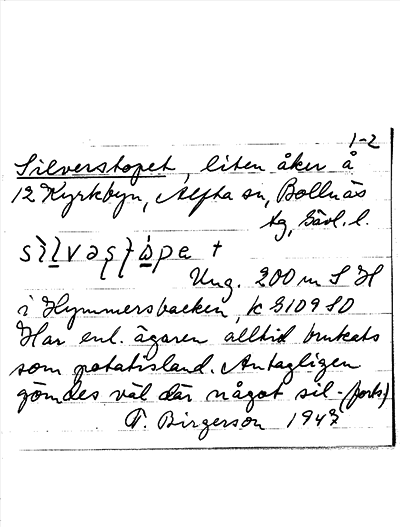 1-2
Silverstopet, liten åker å
12 Kyrkbyn, Alfta sn, Bollnäs
tg, Gävl. l.
Ung. 200 m S H
i Hymmersbacken, k G109 SO
Har enl. ägaren alltid brukats
som potatisland. Antagligen
gömdes väl där något sil- (forts)
T. Birgerson 1947